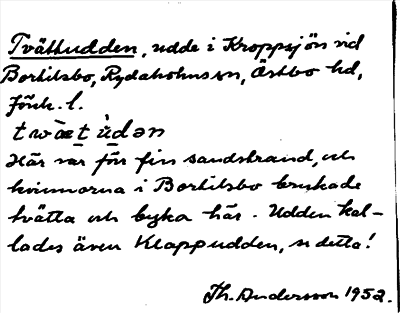 Tvättudden, udde i Kroppsjön vid
Bortilsbo, Rydaholms sn, Östbo hd,
Jönk. l.
tvæ̀t ùdən
Här var förr fin sandstrand, och
kvinnorna i Bortilsbo brukade
tvätta och byka här. Udden kal-
lades även Klappudden, se detta!
Th. Andersson 1952.